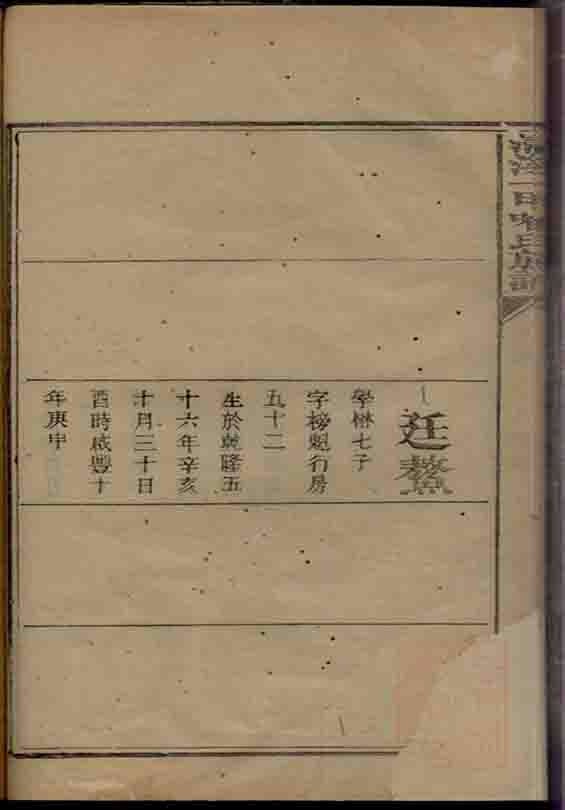 廷鰲
學楙七子
字榜魁行房
五十二
生於乾隆五
十六年辛亥
十月三十日
酉時咸豐十
年庚申